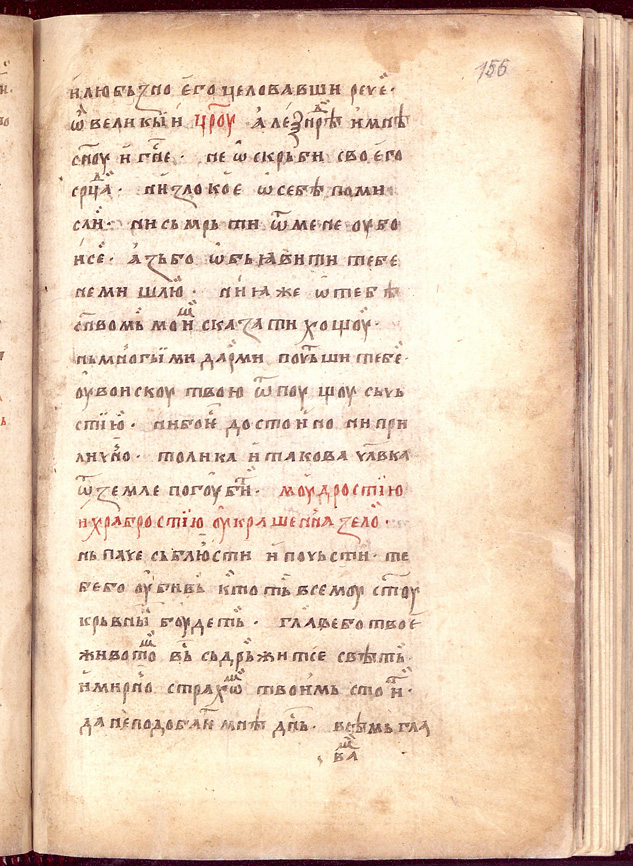 156
и҆любьꙁно є҆гоцеловавши реч҇е ·
ѿ великы и цр҃оу · а҆леѯан꙽дрѣ и҆мнѣ
сн҃оу и҆ гн҃е · не ѡ҆скрьби своего
ср꙽ца · ни ꙁлокоє ѡ҆себѣ поми
сли · нисьмрьти ѿ мене оубо
и҆се · а҆ꙁьбо ѡ҆бьꙗвити тебе
немишлю · ни ꙗже ѡ҆тебѣ
сн҃вомь мои сказати хощоу ·
нь многыими дарми поч҇тши тебе ·
оу҆ воискоу твою ѿпоущоу сьчь
стїю · нибо достоино ни при
лич꙽но · толика и҆такова чл҃вка
ѿꙁемле погоубити · моудростїю
и храбростїю оу҆крашенна ꙁело ·
нь паче сьблюсти и҆ почьсти · те
бебо оу҆бивь кто ть всемоу свѣтоу
крьвны боудеть · главебо твоє
живото вь сьдрьжитсе свѣть
и҆мирно страхѡ твоимь стои ·
да неподобаѥ мнѣ дн҃ь · всѣмь гла
ва